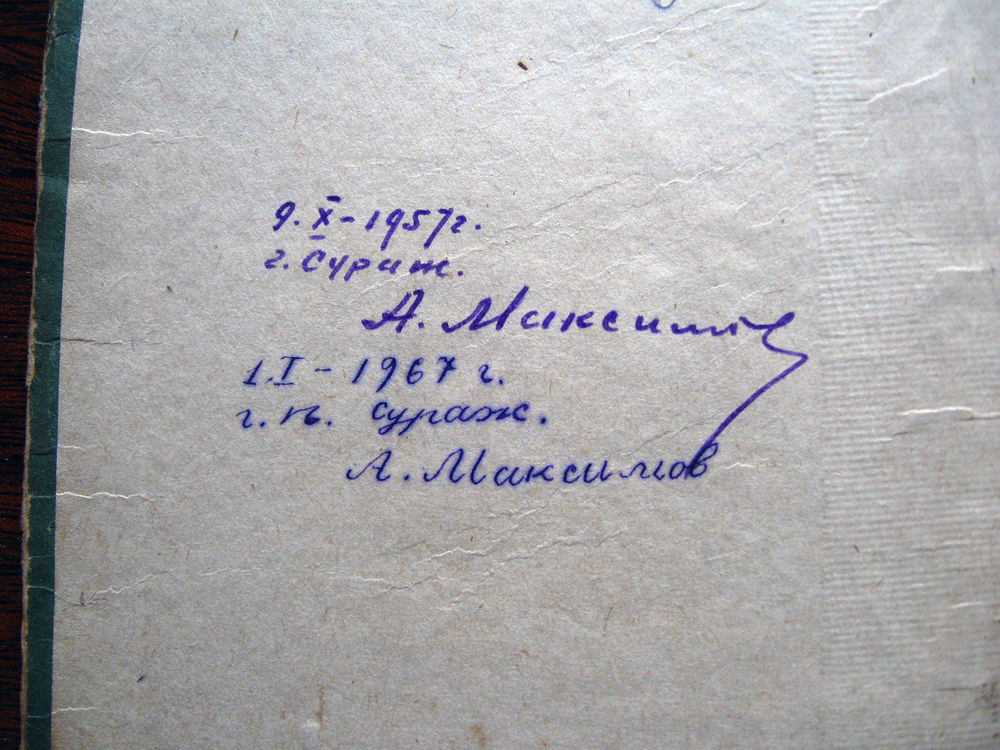 9. X - 1957г.
г. Сураж.
А. Максимов
1. I - 1967 г.
г. п. Сураж.
А. Максимов